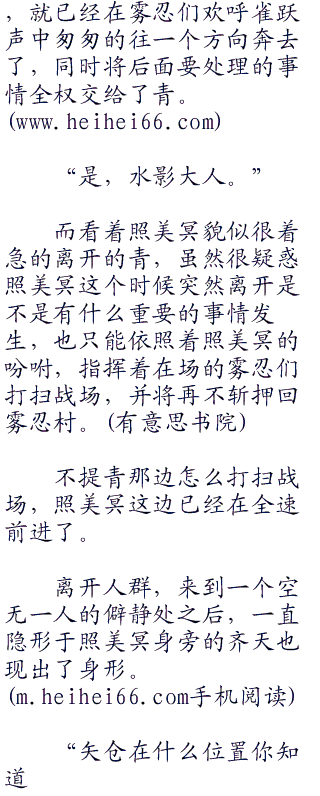 ，就已经在雾忍们欢呼雀跃
声中匆匆的往一个方向奔去
了，同时将后面要处理的事
情全权交给了青。
(www.heihei66.com)
“是，水影大人。”
而看着照美冥貌似很着
急的离开的青，虽然很疑惑
照美冥这个时候突然离开是
不是有什么重要的事情发
生，也只能依照着照美冥的
吩咐，指挥着在场的雾忍们
打扫战场，并将再不斩押回
雾忍村。(有意思书院)
不提青那边怎么打扫战
场，照美冥这边已经在全速
前进了。
离开人群，来到一个空
无一人的僻静处之后，一直
隐形于照美冥身旁的齐天也
现出了身形。
(m.heihei66.com手机阅读)
“矢仓在什么位置你知
道